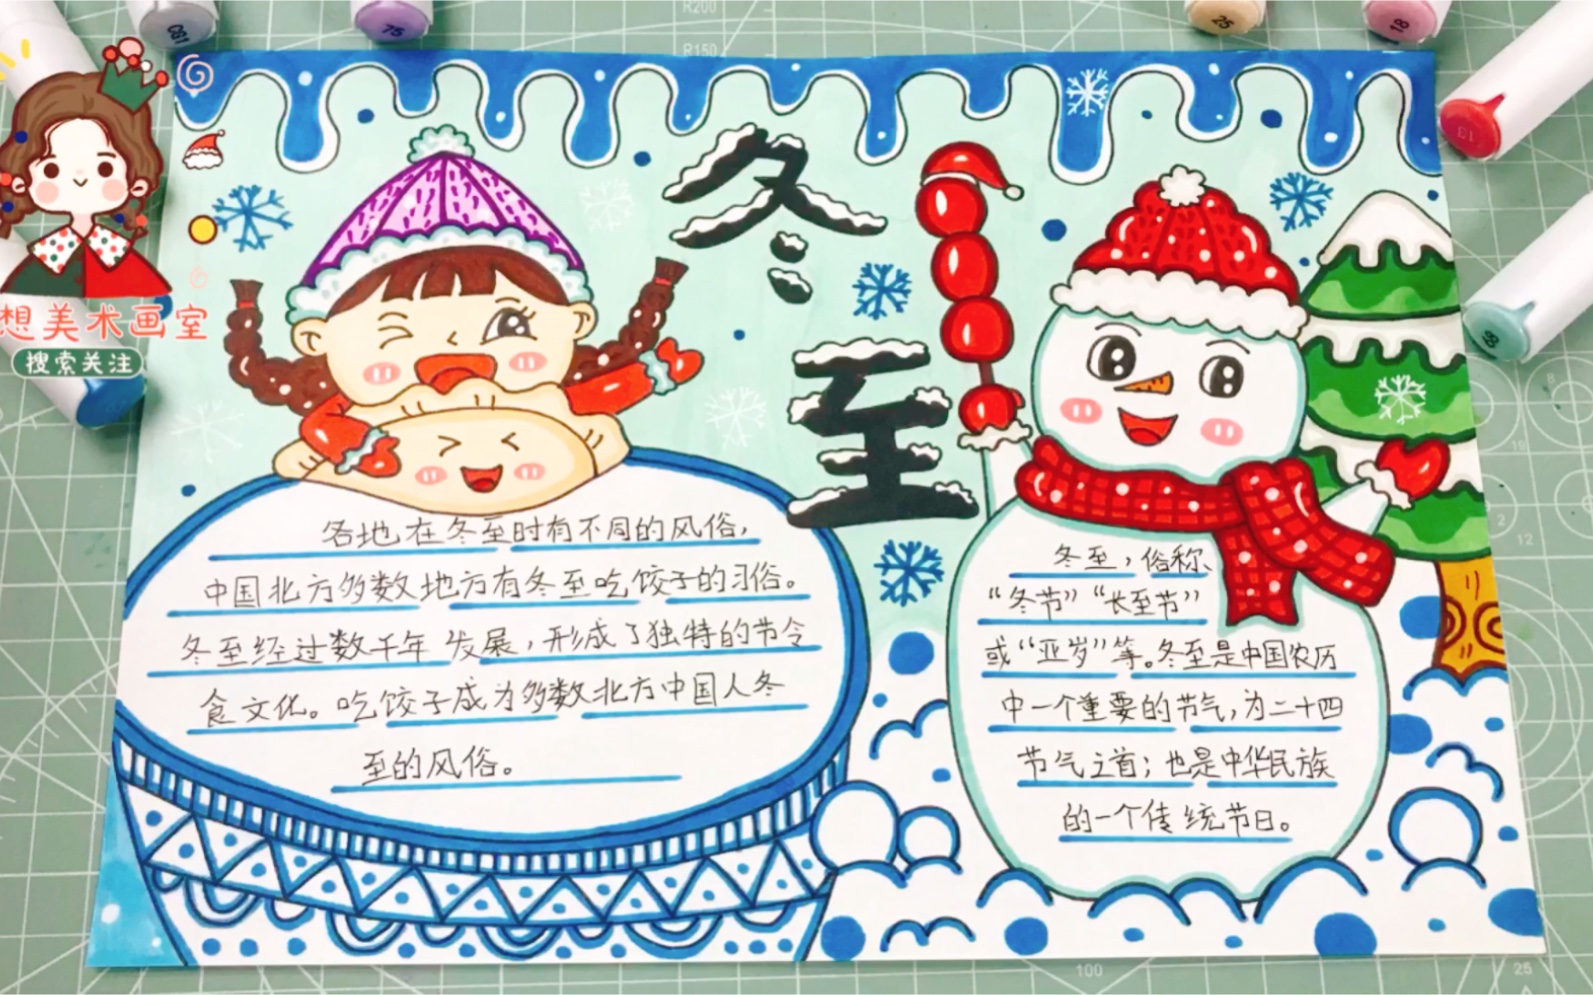 R200
R150
081
75
25
18
13
68
想美术画室
搜索关注
冬至
各地在冬至时有不同的风俗，
中国北方多数地方有冬至吃饺子的习俗。
冬至经过数千年发展，形成了独特的节令
食文化。吃饺子成为多数北方中国人冬
至的风俗。
冬至，俗称
“冬节”“长至节”
或“亚岁”等。冬至是中国农历
中一个重要的节气，为二十四
节气之首；也是中华民族
的一个传统节日。
19
12
12
100
25